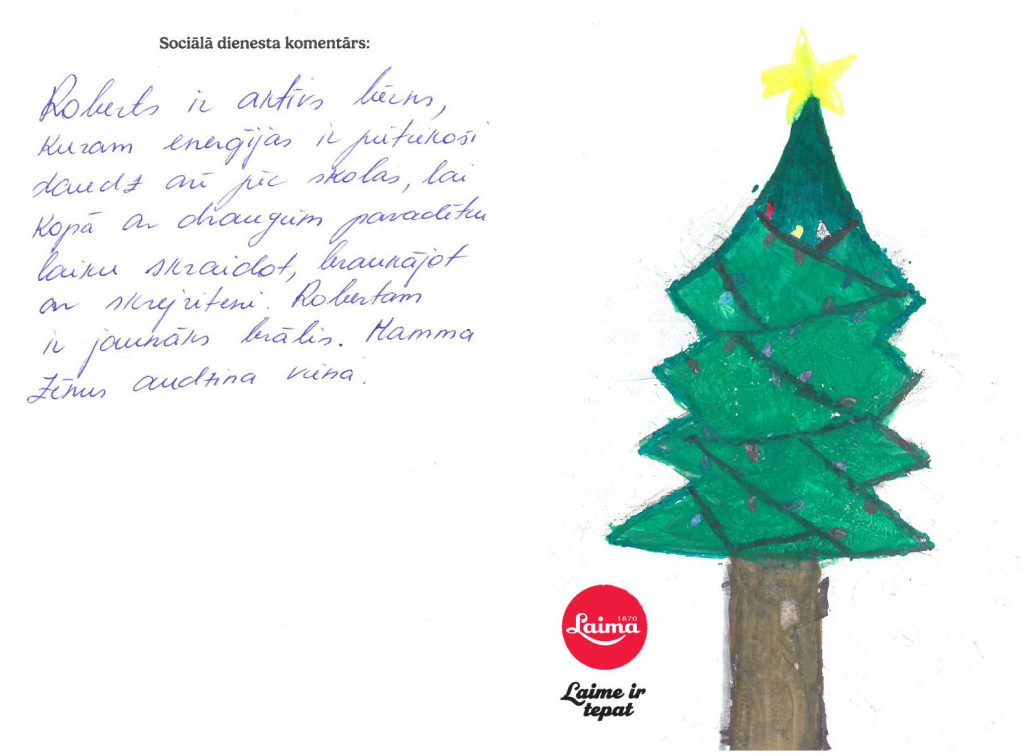 Sociālā dienesta komentārs:
Roberts ir aktīvs bērns,
kuram enerģijas ir pietiekoši
daudz arī pēc skolas, lai
kopā ar draugiem pavadītu
laiku skraidot, braukājot
ar skrejriteni. Robertam
ir jaunāks brālis. Mamma
zēnus audzina viena.
Laima
1870
Laime ir
tepat